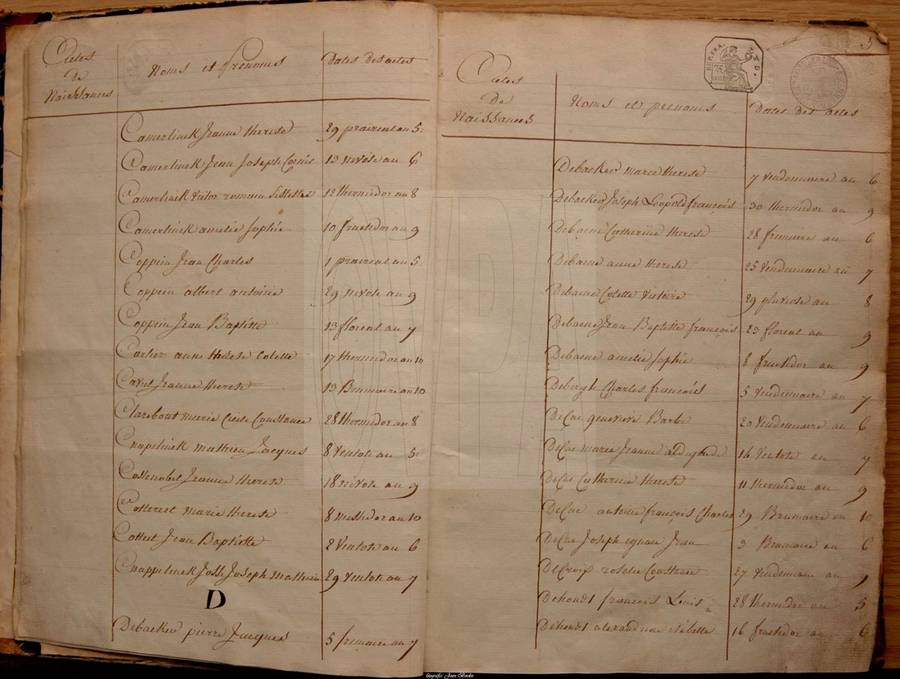 Actes
de
Naissances
Noms et Prenoms
Dates des actes
Camerlinck Jeanne therese 29 prairial an 5
Camerlinck Jean Joseph 13 nivôse an 6
Camerlinck victor romain 12 thermidor an 8
Camerlinck amelie sophie 10 fructidor an 9
Coppein Jean Charles 1 prairial an 5
Coppein albert antoine 29 nivose an 9
Coppein Jean Baptiste 13 floreal an 7
Carlier anne therese Colette 17 thermidor an 10
Jeanne therese 13 Brumaire an 10
Clarebout marie Constance 28 thermidor an 8
Cnapelinck mathieu Jacques 8 Ventose an 5
Jeanne therese 18 nivose an 9
Cotteret marie therese 8 messidor an 10
Jean Baptiste 2 Ventose an 6
Cnappelinck Joseph Mathieu 29 Ventose an 7
D
Debacker pierre Jacques 5 frimaire an 7
3
Actes
De
Naissances
Noms et prenoms
Dates des actes
Debacker marie therese 7 Vendemiaire an 6
Debacker Joseph Léopold françois 30 thermidor an 9
Debaene Catherine therese 28 frimaire an 6
Debaene anne therese 25 Vendemiaire an 7
Debaene Colette victoire 29 pluviose an 8
Debaene Jean Baptiste françois 23 floreal an 9
Debaene amelie sophie 8 fructidor an 9
Debergh Charles françois 5 vendemiaire an 7
Decae genevieve Barbe 20 Vendemiaire an 6
Decae marie Jeanne aldegonde 16 Ventose an 7
Decae Catherine therese 11 thermidor an 9
Decae antoine françois Charles 29 Brumaire an 10
Decae Joseph ignace Jean 3 Brumaire an 6
Decroix rosalie 27 Vendemiaire an 9
Dehondt francois Louis 28 thermidor an 5
Dehondt alexandrine 16 fructidor an 6